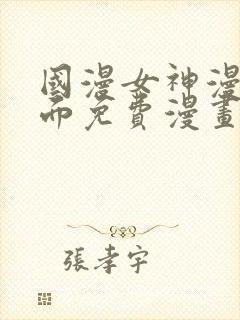 國漫女神漫
帀免費漫畫
張孝宇